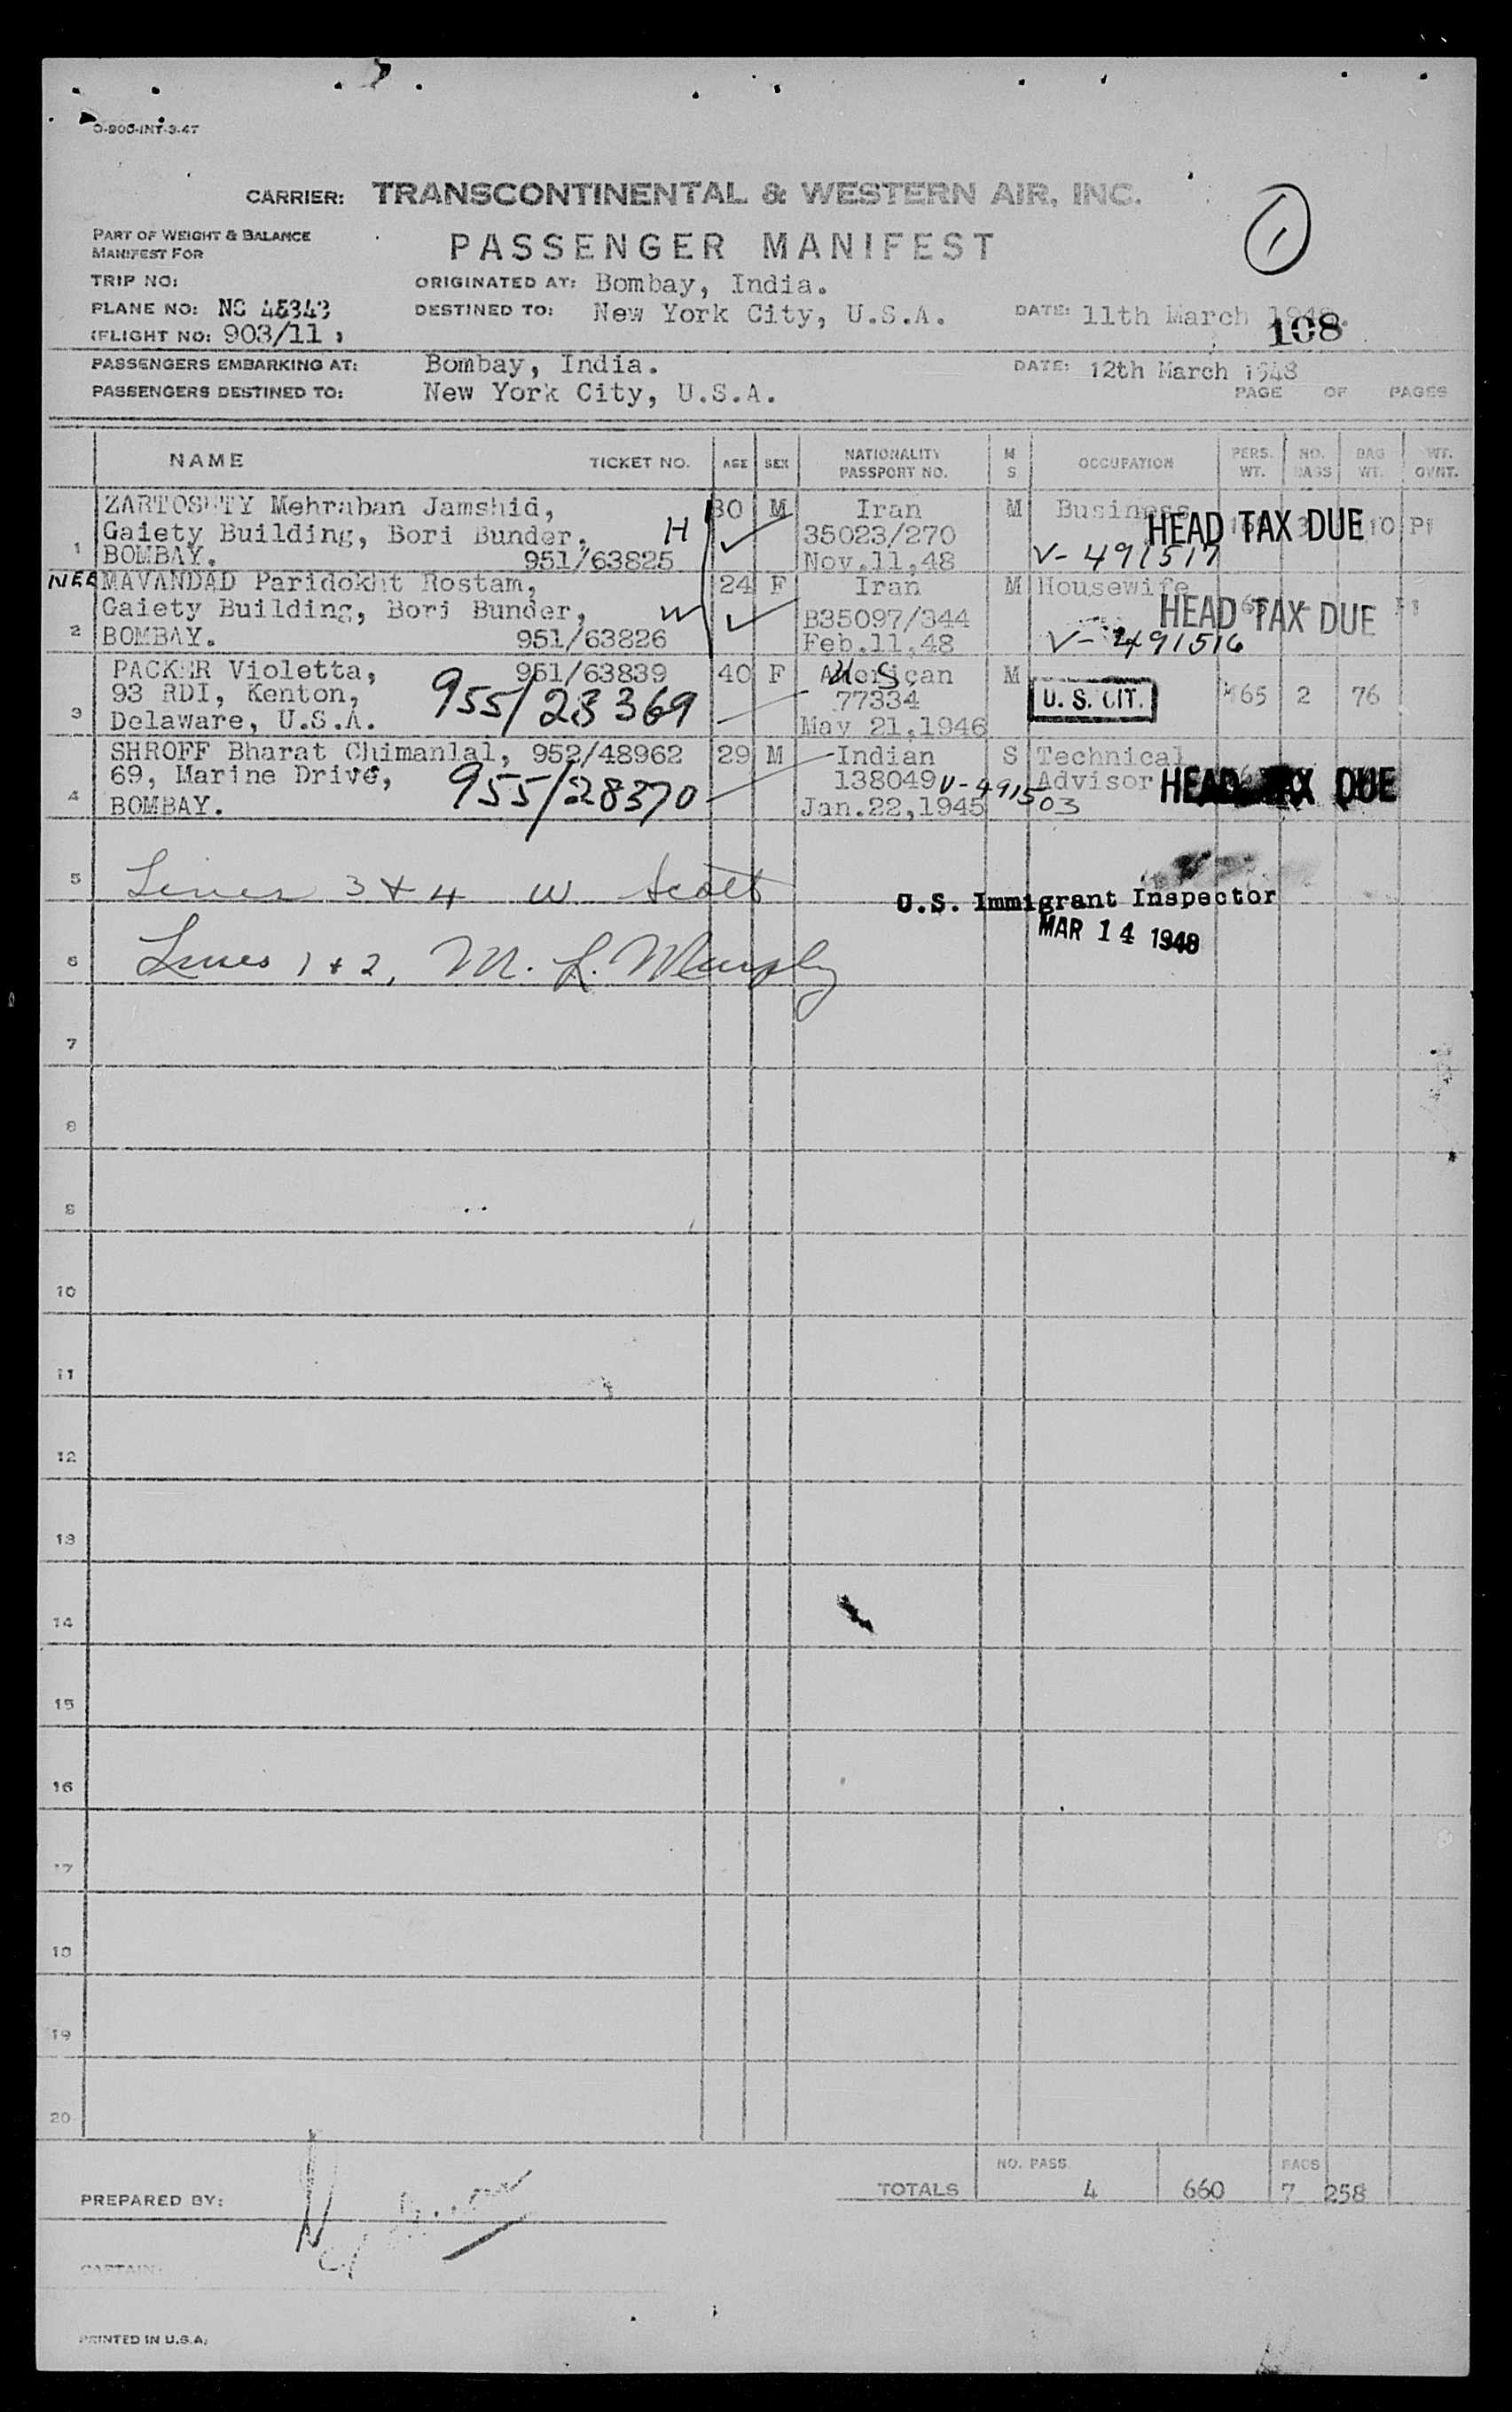 O-906-INT-3-47
CARRIER: TRANSCONTINENTAL & WESTERN AIR, INC.
PART OF WEIGHT & BALANCE
MANIFEST FOR
PASSENGER MANIFEST
1
TRIP NO:
ORIGINATED AT: Bombay, India.
PLANE NO: NC 45343
DESTINED TO: New York City, U.S.A.
DATE: 11th March 1948.
(FLIGHT NO: 903/11)
108
PASSENGERS EMBARKING AT: Bombay, India.
DATE: 12th March 1948
PASSENGERS DESTINED TO: New York City, U.S.A.
PAGE OF PAGES
NAME TICKET NO. AGE SEX NATIONALITY PASSPORT NO. M S OCCUPATION PERS. WT. NO. BAGS BAG WT. WT. OVNT.
ZARTOSHTY Mehraban Jamshid, 30 M Iran M Business
Gaiety Building, Bori Bunder, H 35023/270 HEAD TAX DUE
1 BOMBAY. 951/63825 Nov.11,48 V-491517
NEE MAVANDAD Paridokht Rostam, 24 F Iran M Housewife
Gaiety Building, Bori Bunder, W B35097/344 HEAD TAX DUE
2 BOMBAY. 951/63826 Feb.11,48 V-491516
PACKER Violetta, 951/63839 40 F American U.S. M
93 RDI, Kenton, 955/23369 77334 U.S. CIT. 165 2 76
3 Delaware, U.S.A. May 21,1946
SHROFF Bharat Chimanlal, 952/48962 29 M Indian S Technical
69, Marine Drive, 955/28370 138049 V-491503 Advisor HEAD TAX DUE
4 BOMBAY. Jan.22,1945
5 Lines 3 & 4 W. Scott
U.S. Immigrant Inspector
MAR 14 1948
6 Lines 1 & 2, M. L. Murphy
7
8
9
10
11
12
13
14
15
16
17
18
19
20
NO. PASS. BAGS
TOTALS 4 660 7 258
PREPARED BY:
CAPTAIN:
PRINTED IN U.S.A.